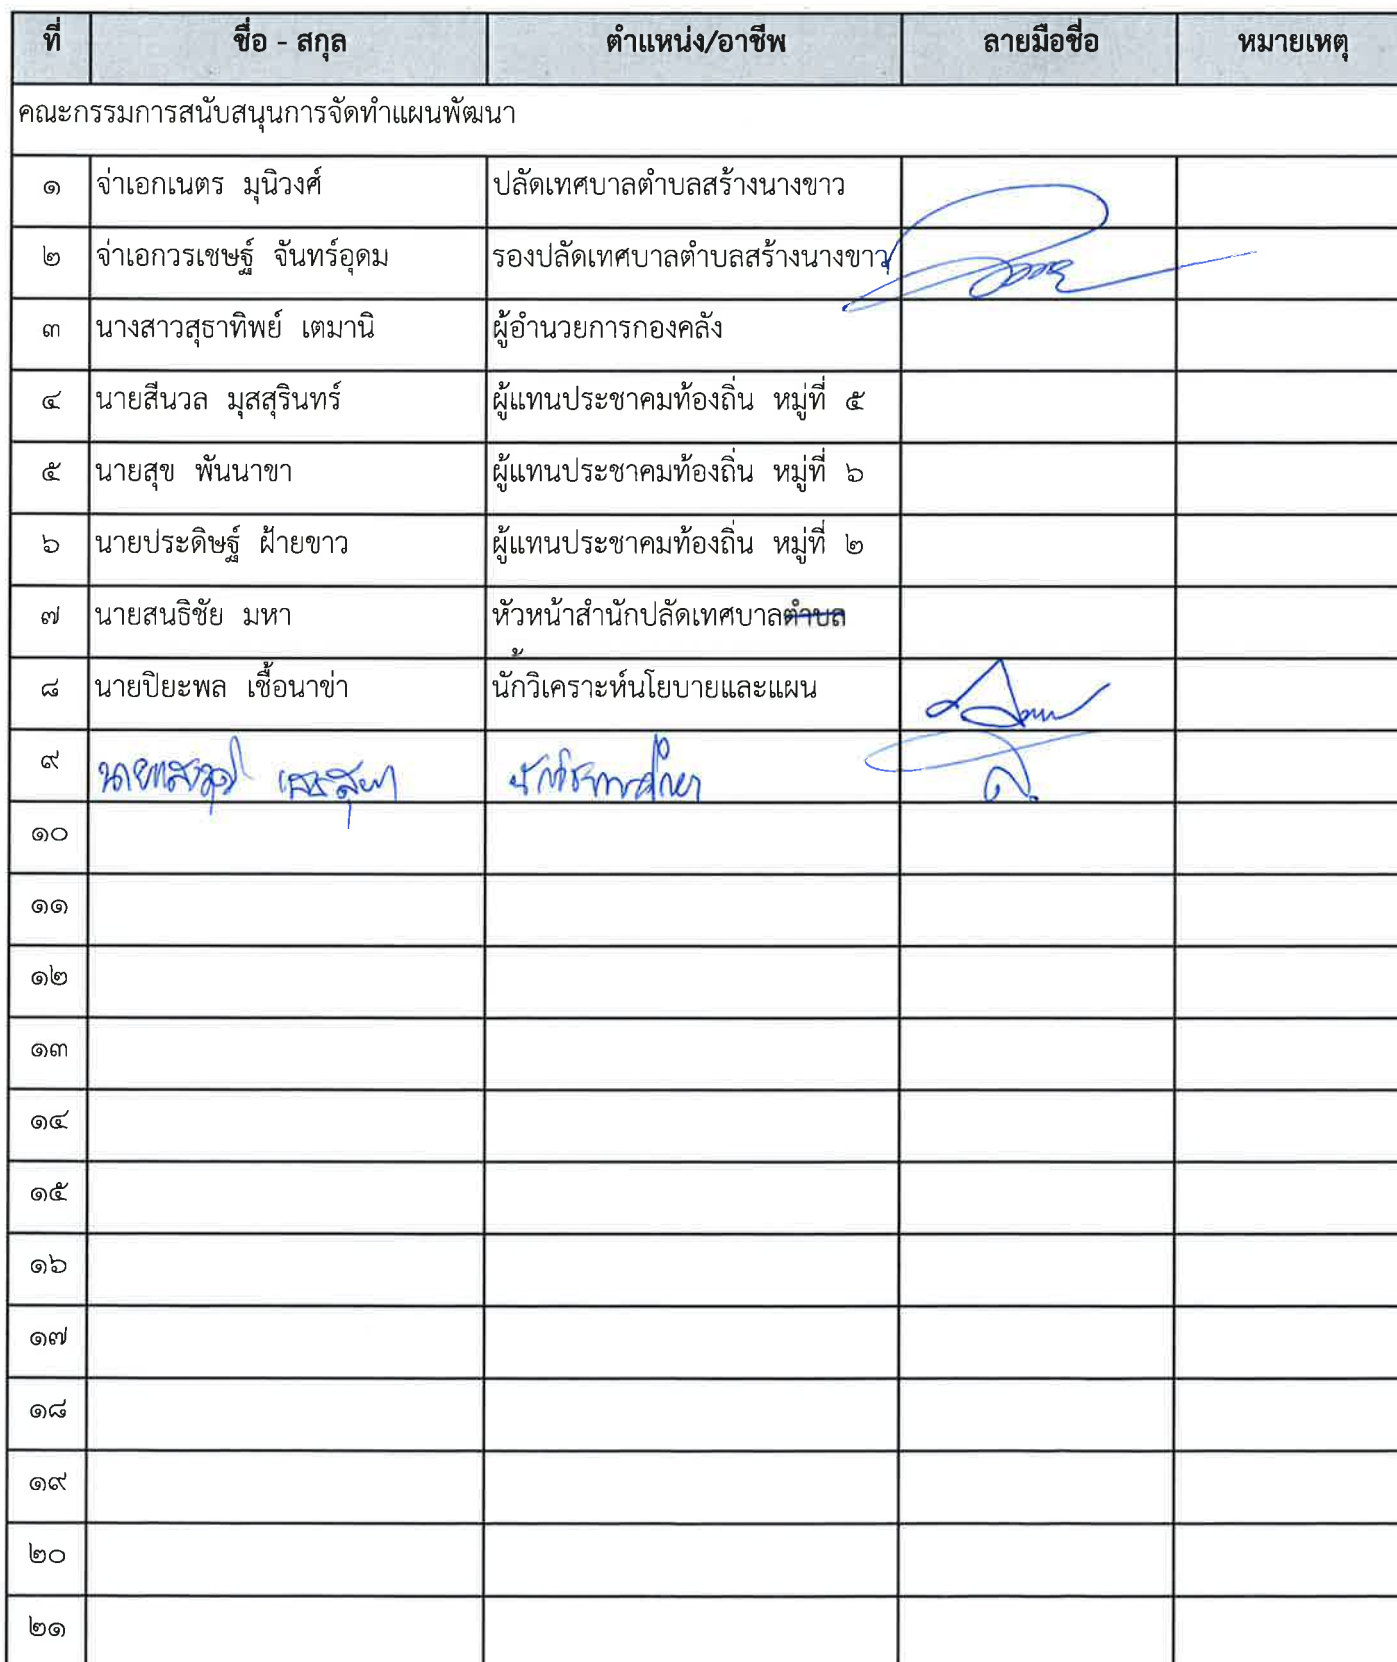 ที่ ชื่อ - สกุล ตำแหน่ง/อาชีพ ลายมือชื่อ หมายเหตุ
คณะกรรมการสนับสนุนการจัดทำแผนพัฒนา
๑ จ่าเอกเนตร มุนิวงศ์ ปลัดเทศบาลตำบลสร้างนางขาว
๒ จ่าเอกวรเชษฐ์ จันทร์อุดม รองปลัดเทศบาลตำบลสร้างนางขาว
๓ นางสาวสุธาทิพย์ เตมานิ ผู้อำนวยการกองคลัง
๔ นายสีนวล มุสสุรินทร์ ผู้แทนประชาคมท้องถิ่น หมู่ที่ ๕
๕ นายสุข พันนาขา ผู้แทนประชาคมท้องถิ่น หมู่ที่ ๖
๖ นายประดิษฐ์ ฝ้ายขาว ผู้แทนประชาคมท้องถิ่น หมู่ที่ ๒
๗ นายสนธิชัย มหา หัวหน้าสำนักปลัดเทศบาลตำบล
๘ นายปิยะพล เชื้อนาข่า นักวิเคราะห์นโยบายและแผน
๙ นักวิชาการศึกษา
๑๐
๑๑
๑๒
๑๓
๑๔
๑๕
๑๖
๑๗
๑๘
๑๙
๒๐
๒๑